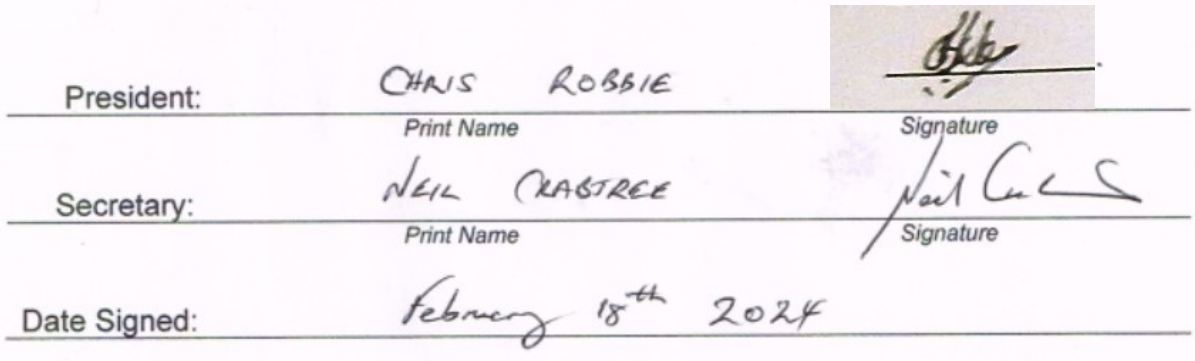 President: CHRIS ROBBIE
Print Name Signature
Secretary: NEIL CRABTREE Neil
Print Name Signature
Date Signed: February 18th 2024